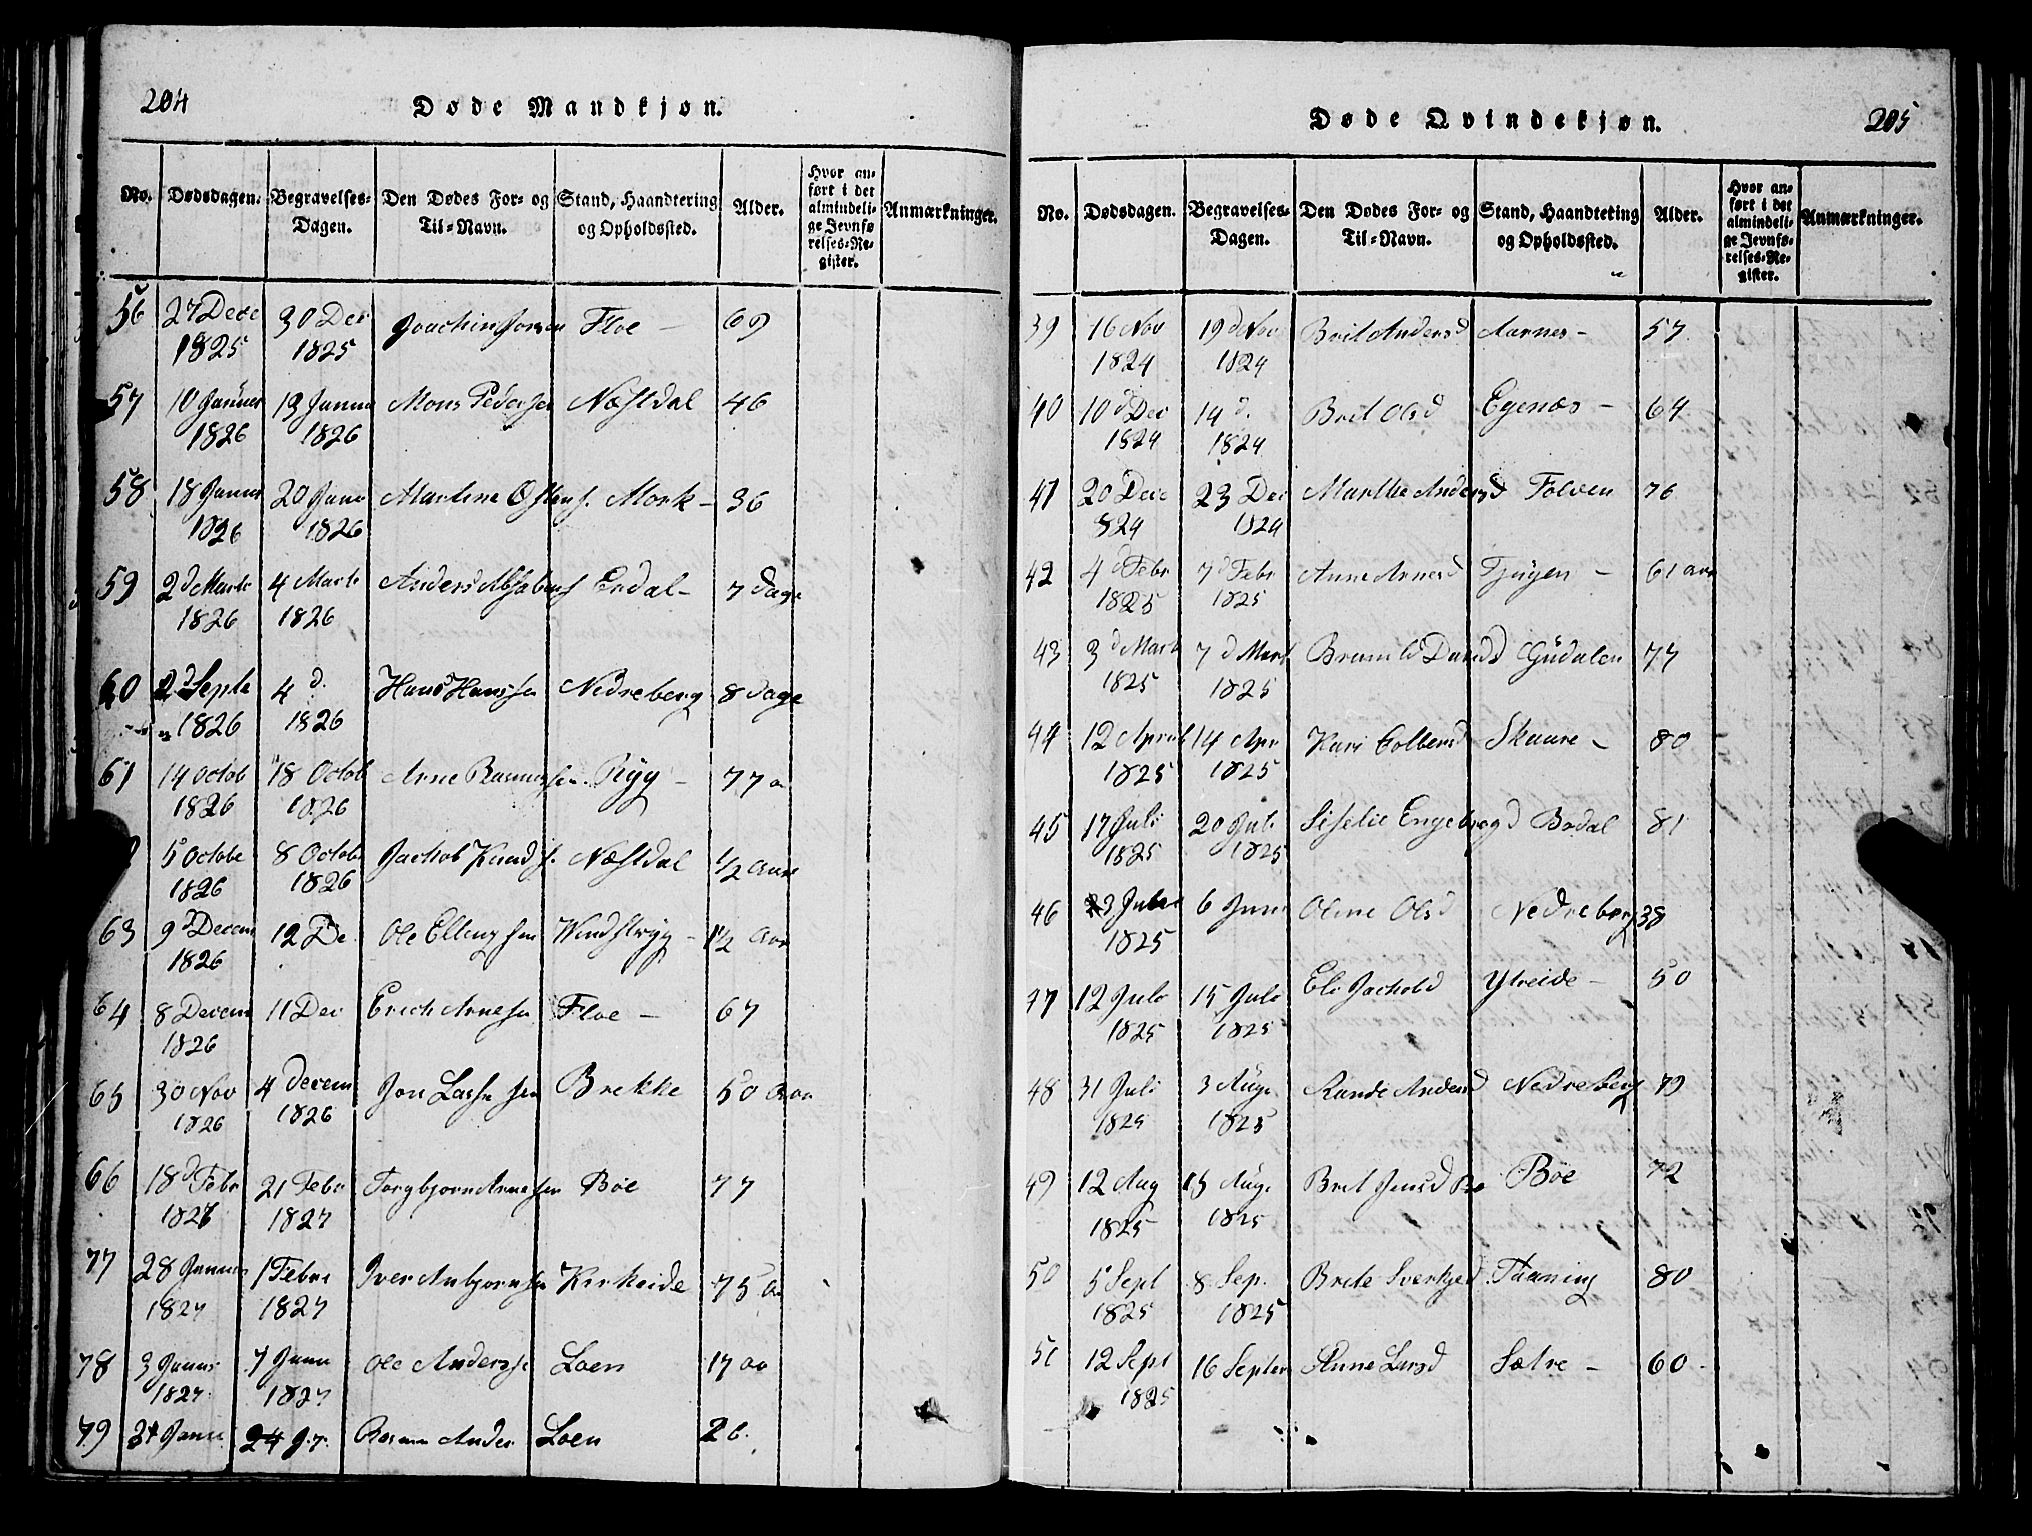 204
Døde Mandkjøn.
No. Dødsdagen. Begravelses-Dagen. Den Dødes For- og Til-Navn. Stand, Haandtering og Opholdssted. Alder. Hvor anført i det almindelige Jevnførelses-Register. Anmærkninger.
56 27 Dece 30 Dec Joachim Jonsen Floe – 69
1825 1825
57 10 Januar 13 Janua Mons Pedersen Næstdal 46
1826 1826
58 18 Janua 20 Janu Mork – 36
1826 1826
59 2d Marts 4 Marts Anders Erdal – 7 Dage
1826 1826
60 2d Septe 4 d. Hans Hanssen Nedreberg 8 Dage
1826 1826
61 14 Octob 18 Octob Arne Rasmussen Ryg – 77
1826 1826
5 Octobe 8 Octob Jachob Knuds Næstdal 1/2 Aar
1826 1826
63 9d Decem 12 De Ole Ellingsen 1 1/2 Aar
1826
64 8 Decem 11 Dec Erich Arnesen Floe – 67
1826
65 30 Nov 4 Decem Jon Lassesen Brekke 50 Aar
1826 1826
66 18d Febr 21 Febr Torgbjørn Arnesen Böe 77
1827 1827
77 28 Januar 1 Febru Iver Anbjørnsen Kirkeide 75
1827 1827
78 3 Janua 7 Janu Ole Anderse Loen 17
1827 1827
79 Janu 24 Rasmu Anders Loen 26.
Døde Qvindekjøn.
205
No. Dødsdagen. Begravelses-Dagen. Den Dødes For- og Til-Navn. Stand, Haandtering og Opholdssted. Alder. Hvor anført i det almindelige Jevnførelses-Register. Anmærkninger.
39 16 Nov 19d Nov Brit Andersd Aarnes – 57
1824 1824
40 10d Dec 14 d. Brit Olsd Egenæs – 64
1824 1824
41 20 Dece 23 Dec Marthe Andersd Folven 76
824 1824
42 4d Febr 7d Febr Anne Arnesd Tjugen – 61 aar
1825 1825
43 3d Marts 7d Mart Davidsd 77
1825 1825
44 12 April 14 Apr Kari Colbensd Skaare – 80
1825 1825
45 17 Juli 20 Juli Siselie 81
1825 1825
46 3 6 Olsd Nedreberg 38
1825
47 12 Juli 15 Juli Eli Jachobd Ytreide – 50
1825 1825
48 31 Juli 3 Aug. Rande Andersd Nedreberg 79
1825 1825
49 12 Aug 15 Aug. Brit Jensd Böe 72
1825 1825
50 5 Sept 8 Sep. Brite Sverkjed Taaning 80
1825 1825
51 12 Sept 16 Septer Anne Larsd Sætre – 60
1825